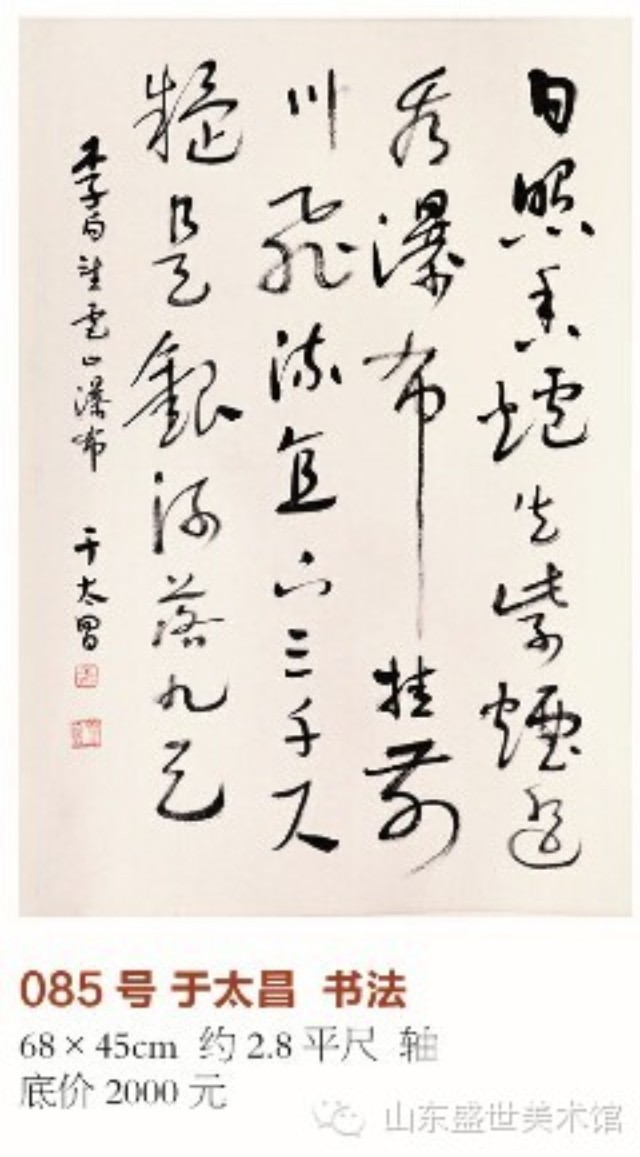 日照香爐生紫煙遥
看瀑布挂前
川飛流直下三千尺
疑是銀河落九天
李白望廬山瀑布 于太昌
085号 于太昌 书法
68×45cm 约2.8平尺 轴
底价2000元
山东盛世美术馆